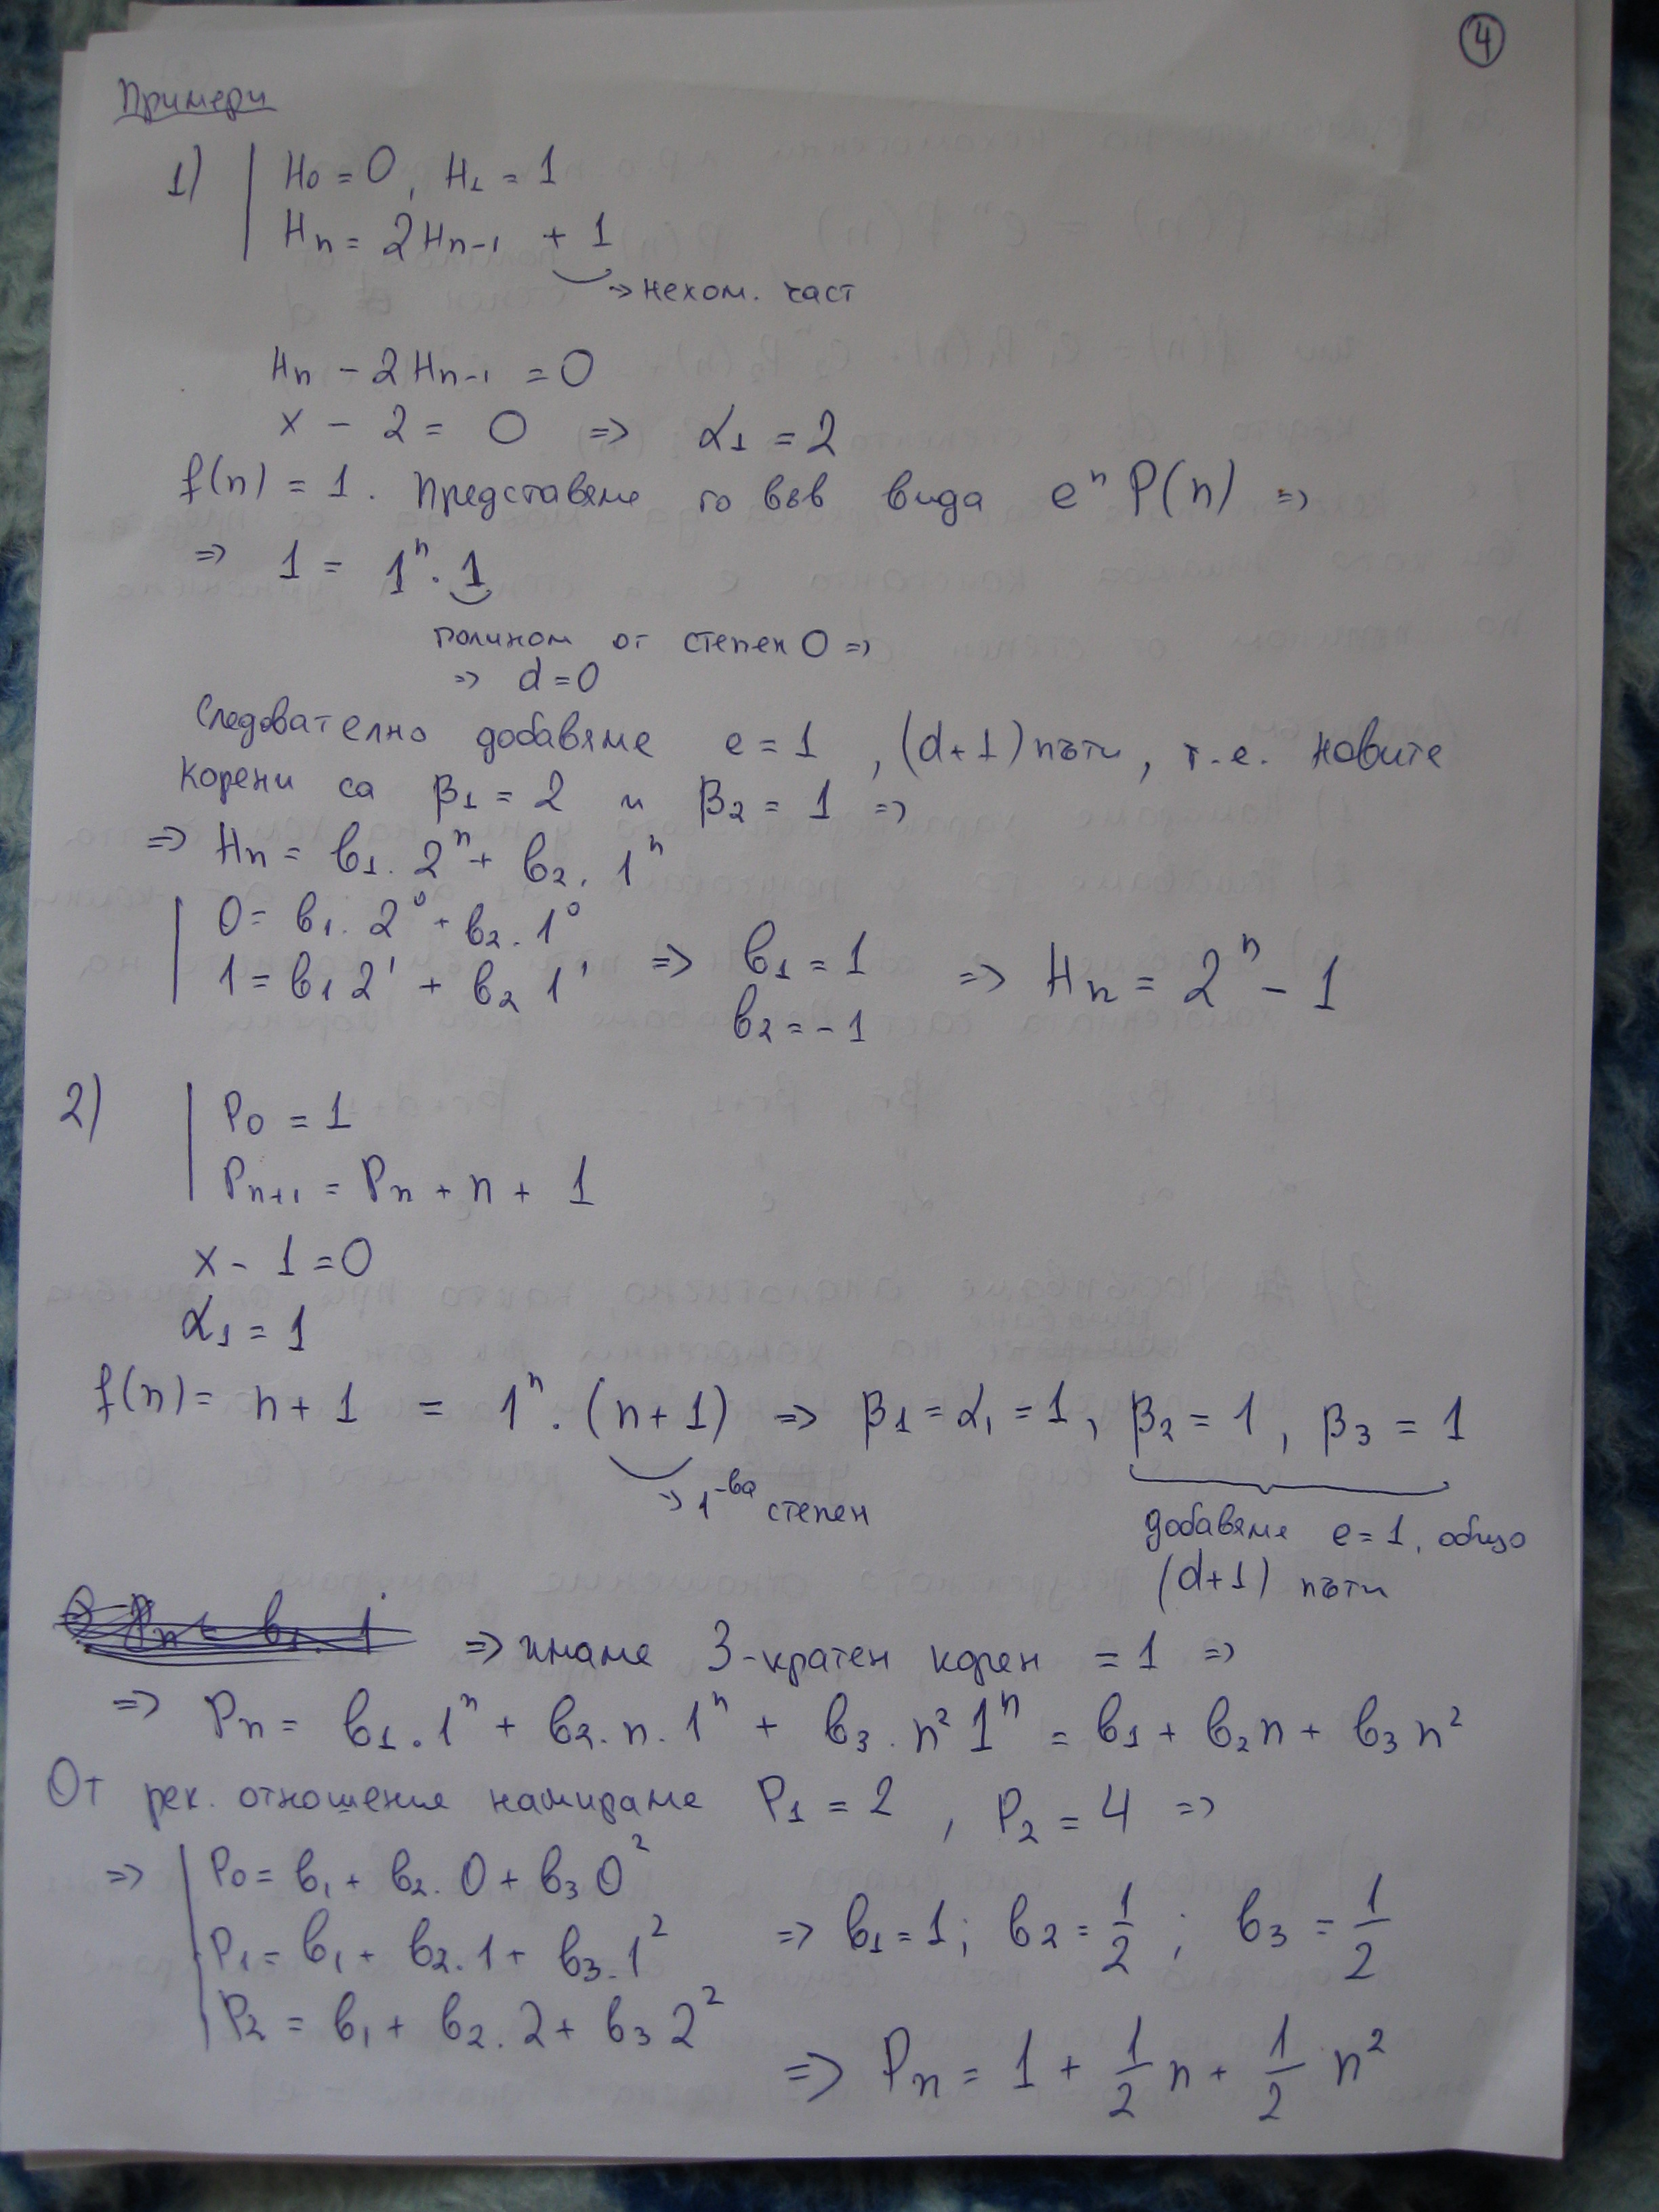 4
Примери
1) H₀ = 0, H₁ = 1
Hₙ = 2Hₙ₋₁ + 1
→ нехом. част
Hₙ - 2Hₙ₋₁ = 0
x - 2 = 0 => α₁ = 2
f(n) = 1. Представяме го във вида eⁿ P(n) =>
=> 1 = 1ⁿ . 1
полином от степен 0 =>
=> d = 0
Следователно добавяме e = 1, (d+1) пъти, т.е. новите
корени са β₁ = 2 и β₂ = 1 =>
=> Hₙ = b₁ . 2ⁿ + b₂ . 1ⁿ
0 = b₁ . 2⁰ + b₂ . 1⁰
1 = b₁ 2¹ + b₂ 1¹ => b₁ = 1 => Hₙ = 2ⁿ - 1
b₂ = -1
2) P₀ = 1
Pₙ₊₁ = Pₙ + n + 1
x - 1 = 0
α₁ = 1
f(n) = n + 1 = 1ⁿ . (n+1) => β₁ = α₁ = 1, β₂ = 1, β₃ = 1
→ 1-ва степен
добавяме e = 1, общо
(d+1) пъти
=> имаме 3-кратен корен = 1 =>
=> Pₙ = b₁ . 1ⁿ + b₂ . n . 1ⁿ + b₃ . n² 1ⁿ = b₁ + b₂n + b₃n²
От рек. отношение намираме P₁ = 2, P₂ = 4 =>
=> P₀ = b₁ + b₂ . 0 + b₃ 0²
P₁ = b₁ + b₂ . 1 + b₃ . 1² => b₁ = 1; b₂ = 1/2; b₃ = 1/2
P₂ = b₁ + b₂ . 2 + b₃ 2²
=> Pₙ = 1 + 1/2 n + 1/2 n²